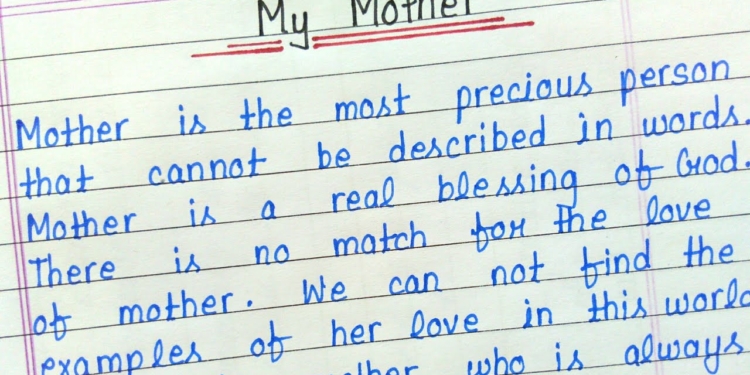 My Mother
Mother is the most precious person
that cannot be described in words.
Mother is a real blessing of God.
There is no match for the love
of mother. We can not find the
examples of her love in this world
who is always